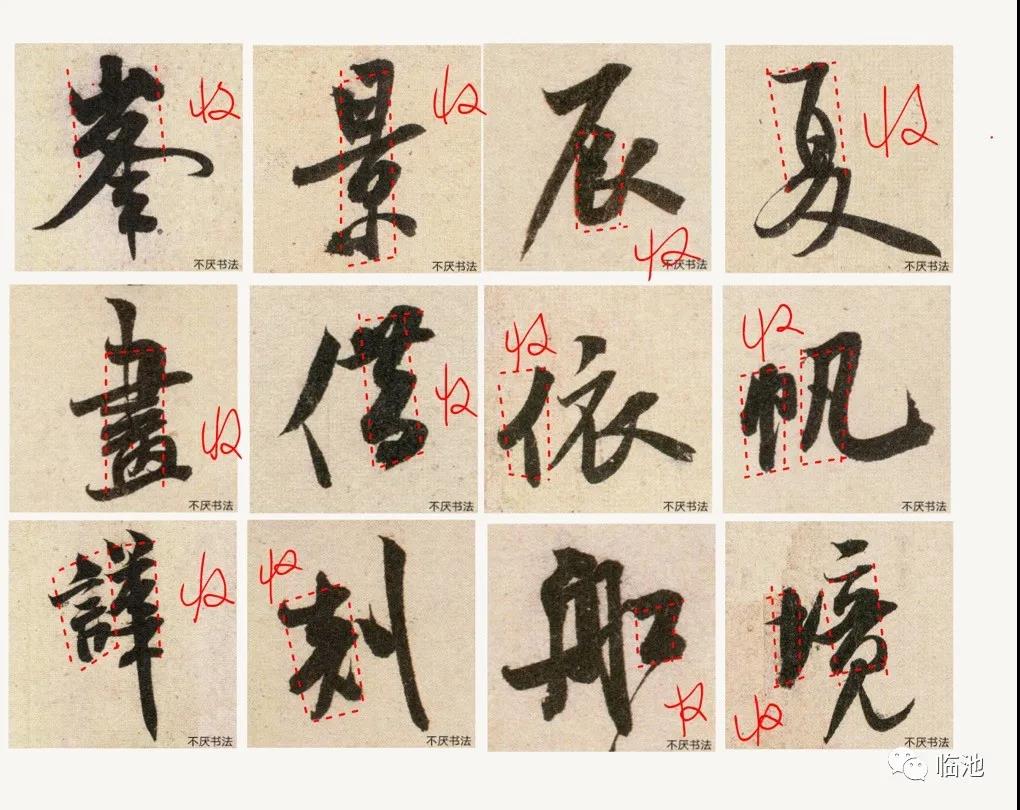 峯 收 景 收 辰 收 夏 收
不厌书法 不厌书法 不厌书法 不厌书法
畫 收 借 收 依 收 帆 收
不厌书法 不厌书法 不厌书法 不厌书法
收 刻 收 船 收 境 收
不厌书法 不厌书法 不厌书法 不厌书法
临池